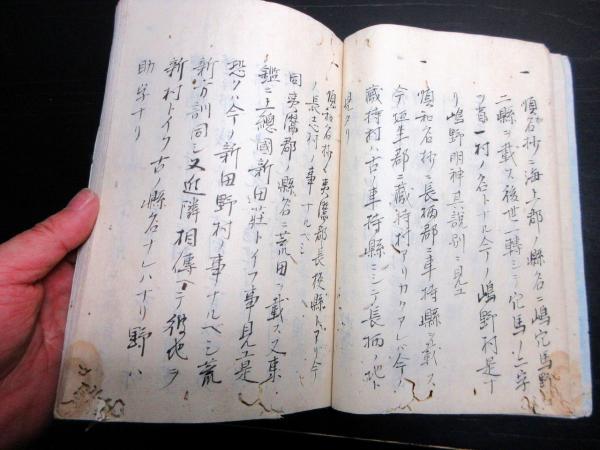 一
順和名抄ニ海上郡ノ縣名ニ嶋穴馬野
二縣ヲ載ス後世一轉シテ穴馬ノ二字
ヲ省一村ノ名トナル今ノ嶋野村是ナ
リ嶋野明神其説別ニ見エ
一
順和名抄ニ長柄郡ニ車持縣ヲ載ス
今埴生郡ニ藏持村アリカクアレハ今ノ
藏持村ハ古ノ車持縣ニシテ長柄ノ地
ナリ
一
順和名抄ニ夷灊郡長後縣トアリ今
ノ長志村ノ事ナルヘシ
同夷灊郡ノ縣名ニ荒田ヲ載ス又東
鑑ニ上總國新田莊トイフ事見エ是
恐ク今ノ新田野村ノ事ナルヘシ荒
新ハ訓同シ又近隣相傳ヘテ彼地ヲ
新村トイフ古ノ縣名ナレハナリ野ハ
助字ナリ